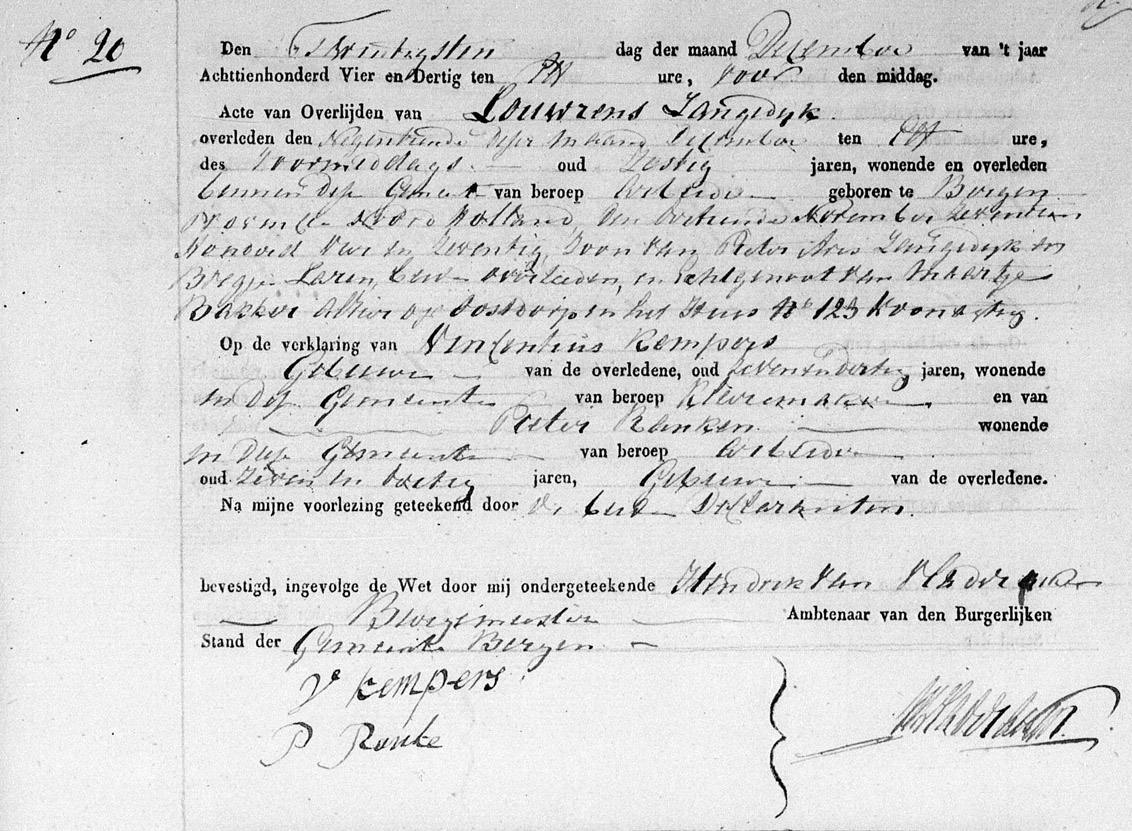 No 20
Den Twintigsten dag der maand December van 't jaar
Achttienhonderd Vier en Dertig ten ure, voor den middag.
Acte van Overlijden van Louwrens Langedyk
overleden den Negentiende deser maand December ten ure,
des voormiddags oud Zestig jaren, wonende en overleden
binnen dese Gemeente van beroep arbeider geboren te Bergen
Provincie Noord Holland den November Zeventien
Honderd Vier en Zeventig, Zoon van Pieter Aris Langedyk en
overleden, en Echtgenoot van Maartje
Bakker Alhier op Oostdorp in het Huis No 123 Woonachtig.
Op de verklaring van Vincentius Kempers
Gebuure van de overledene, oud Zevenendertig jaren, wonende
in dese Gemeente van beroep en van
Pieter Ranken wonende
in dese Gemeente van beroep arbeider
oud Zeven en jaren, Gebuure van de overledene.
Na mijne voorlezing geteekend door de Declaranten.
bevestigd, ingevolge de Wet door mij ondergeteekende Hendrik van
Burgemeester Ambtenaar van den Burgerlijken
Stand der Gemeente Bergen
V Kempers
P Ranke